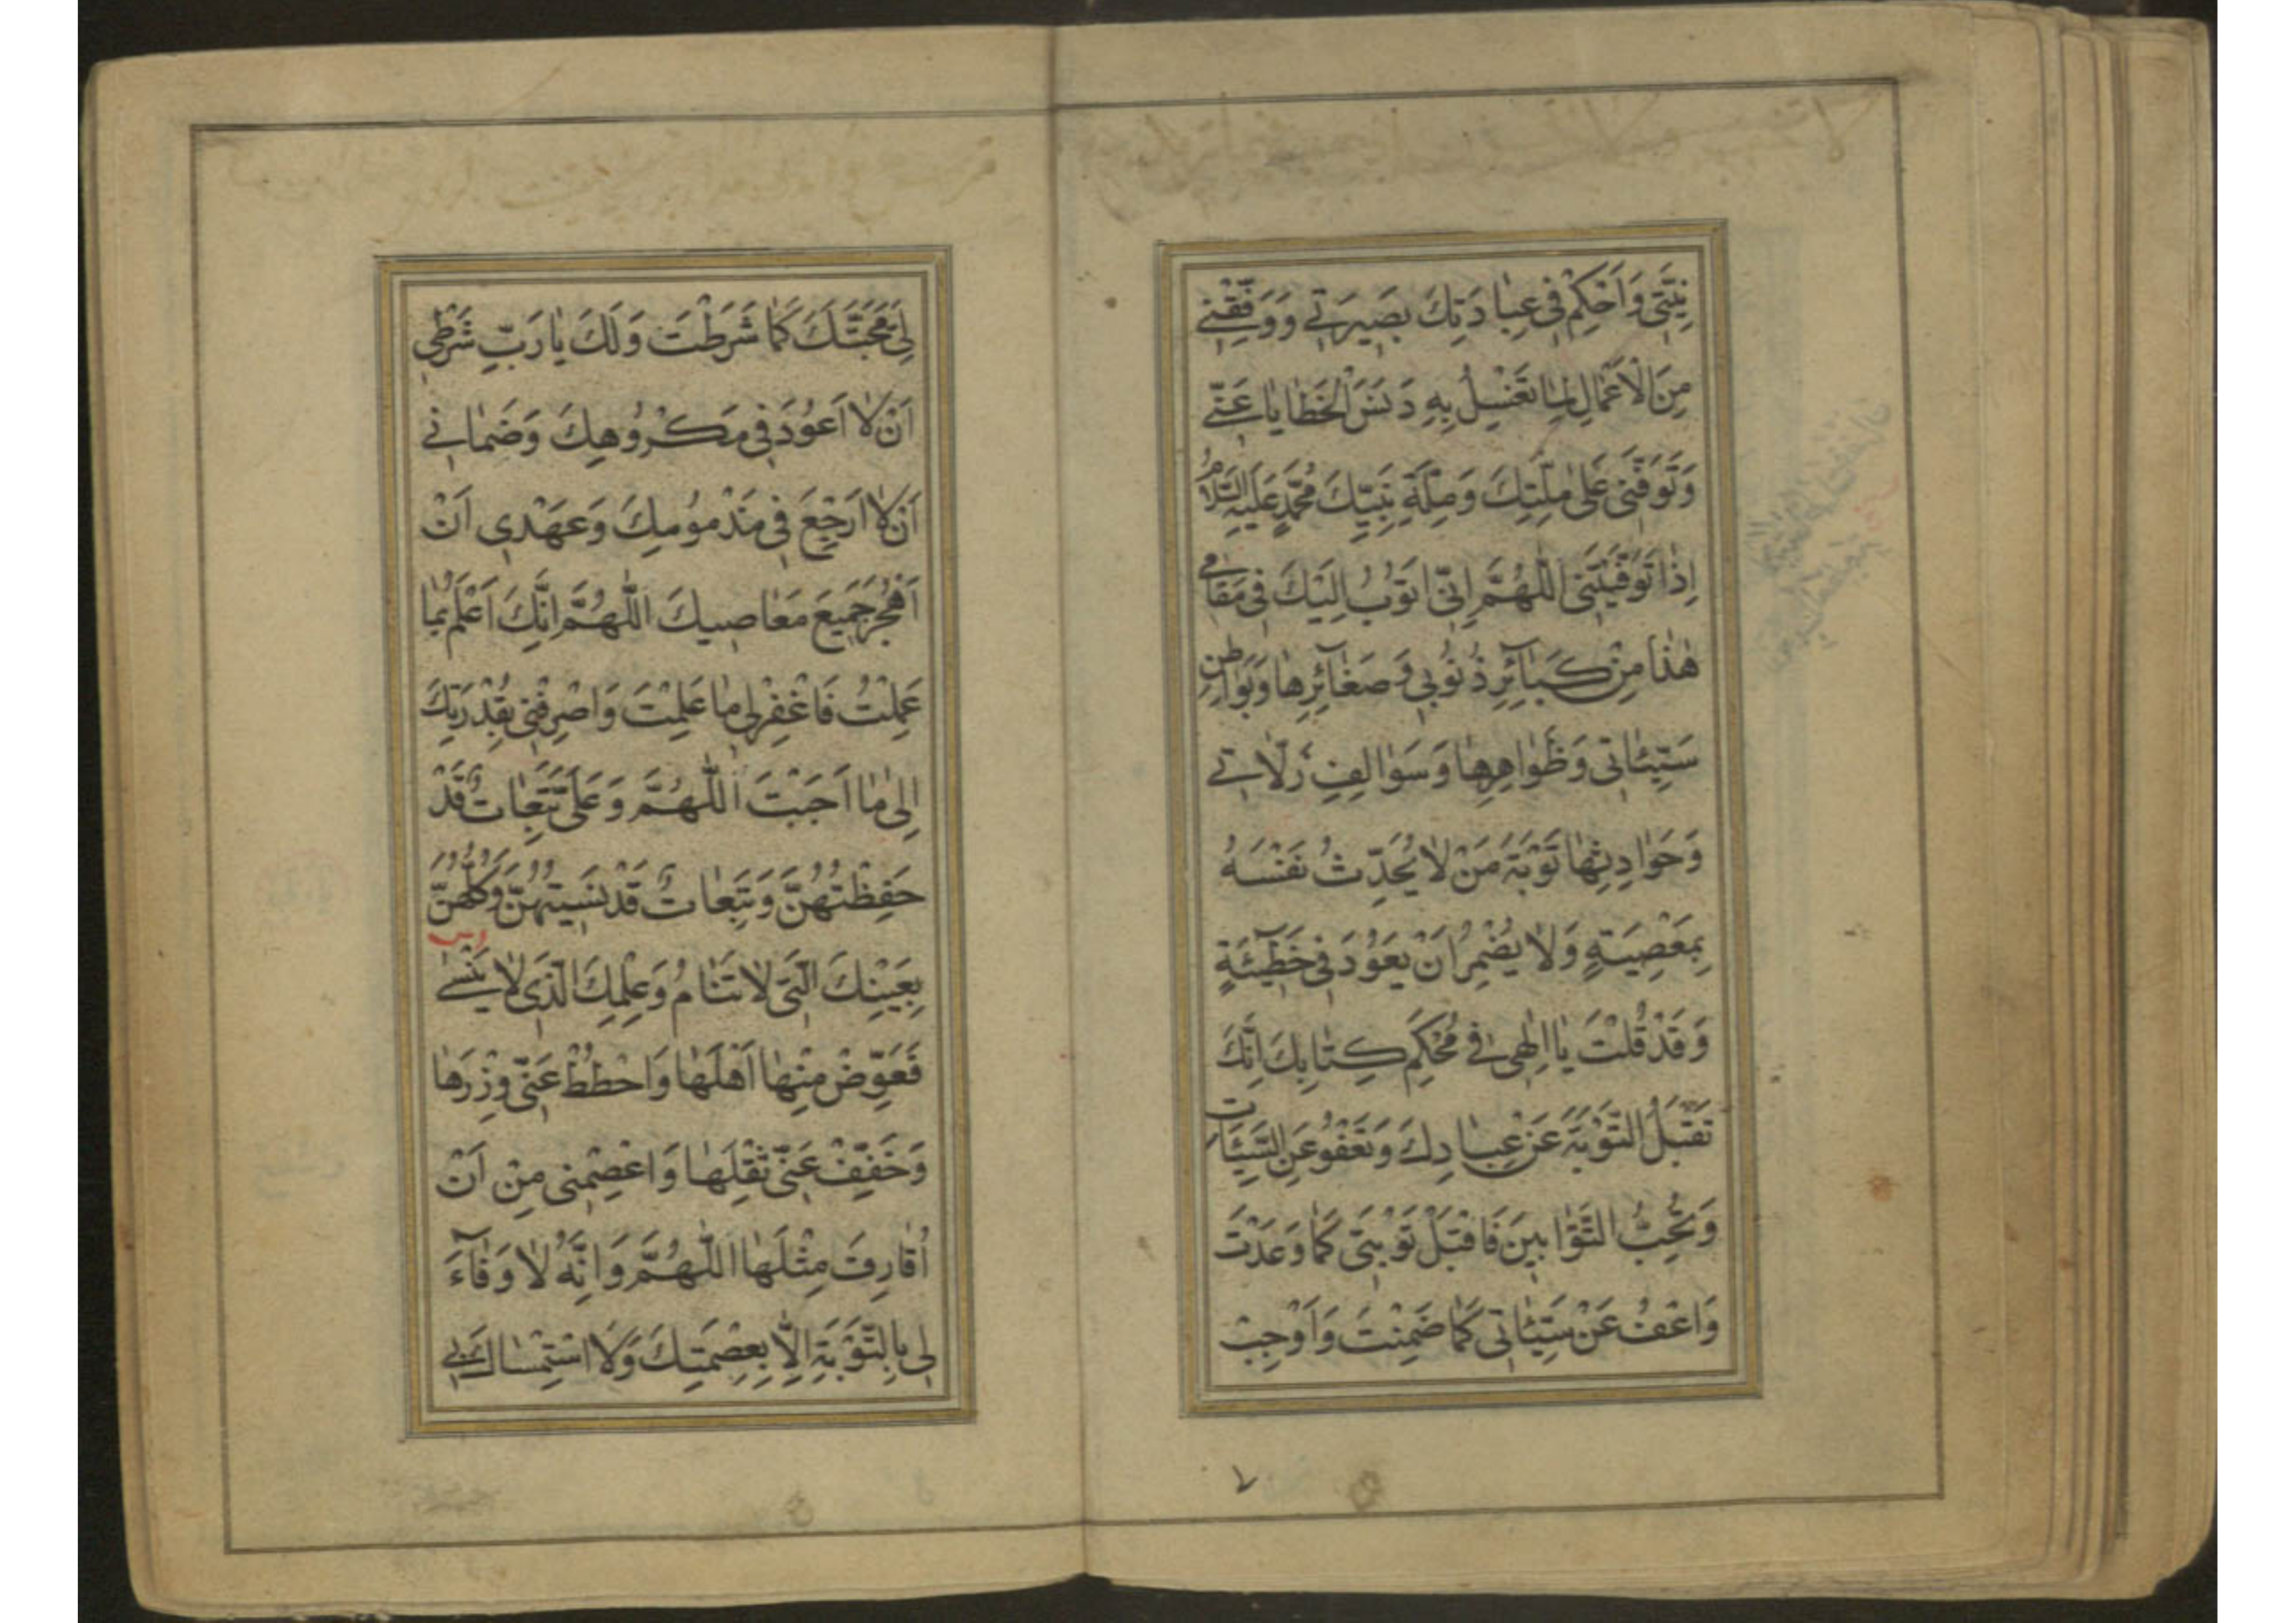 نِيَّتِي وَاَحْكِمْ فِي عِبَادَتِكَ بَصِيرَتِي وَوَفِّقْنِي
مِنَ الْاَعْمَالِ لِمَا تَغْسِلُ بِهِ دَنَسَ الْخَطَايَا عَنِّي
وَتَوَفَّنِي عَلَى مِلَّتِكَ وَمِلَّةِ نَبِيِّكَ مُحَمَّدٍ عَلَيْهِ السَّلَامُ
اِذَا تَوَفَّيْتَنِي اَللّٰهُمَّ اِنِّي اَتُوبُ اِلَيْكَ فِي مَقَامِي
هٰذَا مِنْ كَبَآئِرِ ذُنُوبِي وَصَغَآئِرِهَا وَبَوَاطِنِ
سَيِّئَاتِي وَظَوَاهِرِهَا وَسَوَالِفِ زَلَّاتِي
وَحَوَادِثِهَا تَوْبَةَ مَنْ لَا يُحَدِّثُ نَفْسَهُ
بِمَعْصِيَةٍ وَلَا يُضْمِرُ اَنْ يَعُودَ فِي خَطِيٓئَةٍ
وَقَدْ قُلْتَ يَا اِلٰهِي فِي مُحْكَمِ كِتَابِكَ اِنَّكَ
تَقْبَلُ التَّوْبَةَ عَنْ عِبَادِكَ وَتَعْفُو عَنِ السَّيِّئَاتِ
وَتُحِبُّ التَّوَّابِينَ فَاقْبَلْ تَوْبَتِي كَمَا وَعَدْتَ
وَاعْفُ عَنْ سَيِّئَاتِي كَمَا ضَمِنْتَ وَاَوْجِبْ
لِي مَحَبَّتَكَ كَمَا شَرَطْتَ وَلَكَ يَا رَبِّ شَرْطِي
اَنْ لَا اَعُودَ فِي مَكْرُوهِكَ وَضَمَانِي
اَنْ لَا اَرْجِعَ فِي مَذْمُومِكَ وَعَهْدِي اَنْ
اَهْجُرَ جَمِيعَ مَعَاصِيكَ اَللّٰهُمَّ اِنَّكَ اَعْلَمُ بِمَا
عَمِلْتُ فَاغْفِرْ لِي مَا عَلِمْتَ وَاصْرِفْنِي بِقُدْرَتِكَ
اِلَى مَا اَحْبَبْتَ اَللّٰهُمَّ وَعَلَيَّ تَبِعَاتٌ قَدْ
حَفِظْتُهُنَّ وَتَبِعَاتٌ قَدْ نَسِيتُهُنَّ وَكُلُّهُنَّ
بِعَيْنِكَ الَّتِي لَا تَنَامُ وَعِلْمِكَ الَّذِي لَا يَنْسَى
فَعَوِّضْ مِنْهَا اَهْلَهَا وَاحْطُطْ عَنِّي وِزْرَهَا
وَخَفِّفْ عَنِّي ثِقْلَهَا وَاعْصِمْنِي مِنْ اَنْ
اُقَارِفَ مِثْلَهَا اَللّٰهُمَّ وَاِنَّهُ لَا وَفَآءَ
لِي بِالتَّوْبَةِ اِلَّا بِعِصْمَتِكَ وَلَا اسْتِمْسَاكَ بِي